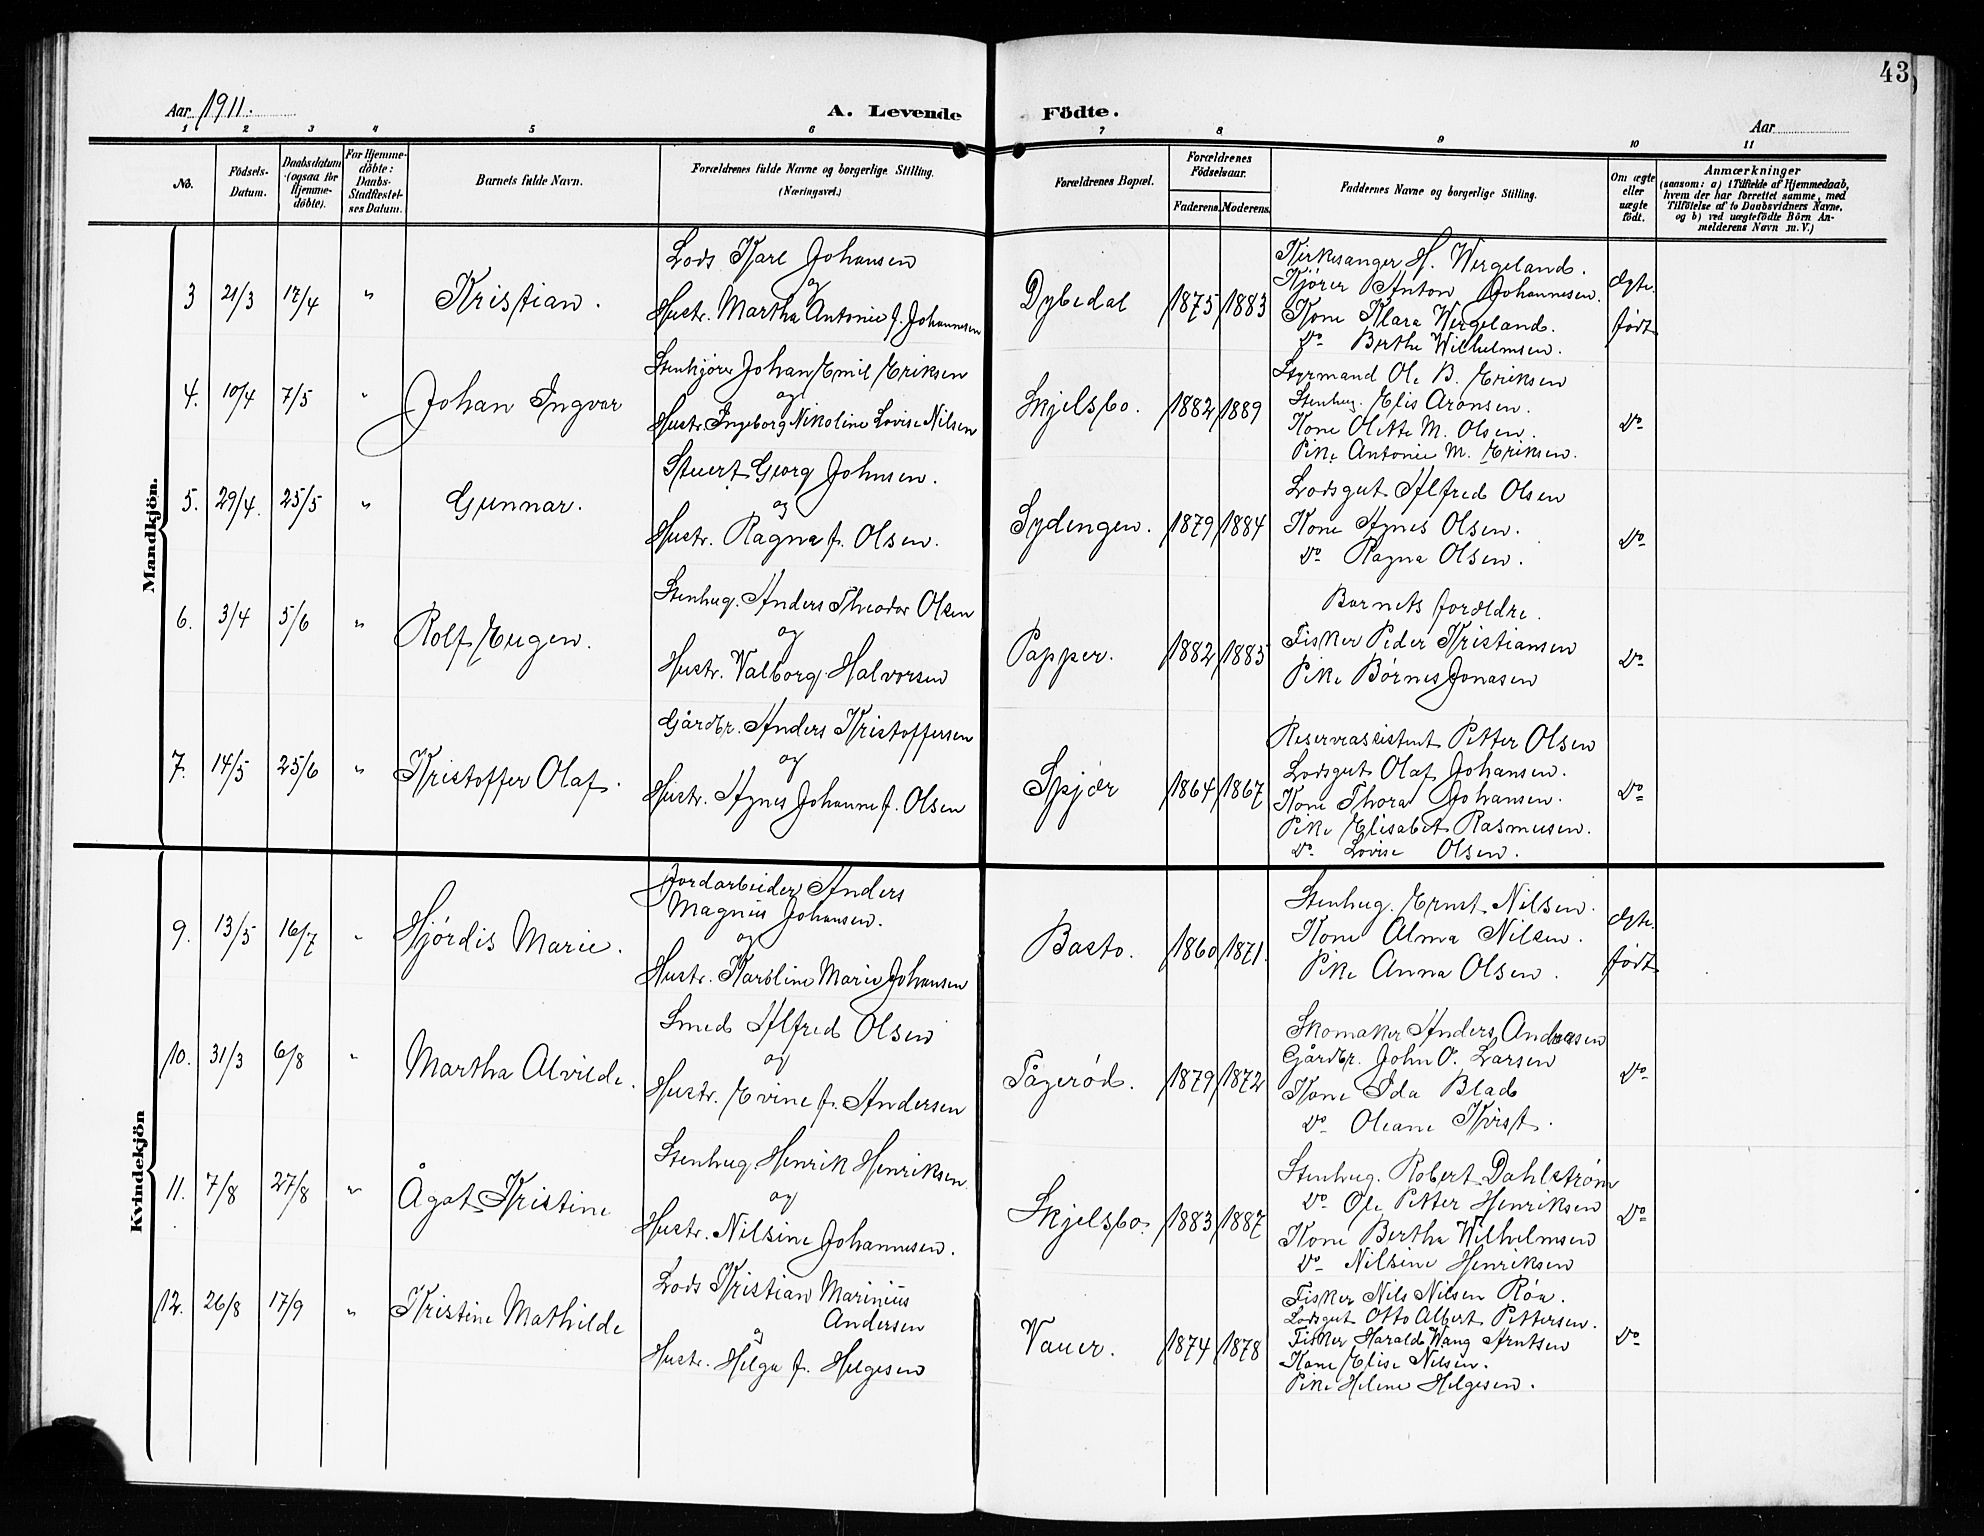 43
Aar 1911.
A. Levende Födte.
Aar
1 2 3 4 5 6 7 8 9 10 11
No.
Födsels-Datum.
Daabsdatum (ogsaa for Hjemme-döbte).
For Hjemme-döbte: Daabs-Stadfæstel-ses Datum.
Barnets fulde Navn.
Forældrenes fulde Navne og borgerlige Stilling. (Næringsvei.)
Forældrenes Bopæl.
Forældrenes Födselsaar.
Faderens. Moderens.
Faddernes Navne og borgerlige Stilling.
Om ægte eller uægte födt.
Anmærkninger
(saasom: a) i Tilfælde af Hjemmedaab,
hvem der har forrettet samme, med
Tilföielse af to Daabsvidners Navne,
og b) ved uægtefödte Börn An-
melderens Navn m. V.)
Mandkjön.
3 21/3 17/4 " Kristian.
Lods Karl Johansen
og
Hustr. Martha Antonie f. Johannesen
Dybedal 1875 1883
Kirkesanger H. Wergeland.
Kjører Anton Johannesen.
Kone Klara Wergeland.
Do Berthe Wilhelmsen.
Ægte født
4. 10/4 7/5 " Johan Ingvar
Stenkjører Johan Emil Eriksen
og
Hustr. Ingeborg Nikoline Lovise Nilsen
Skjelsbo. 1882 1889
Styrmand Ole B. Eriksen
Stenhug. Elis Aronsen.
Kone Olette M. Olsen.
Pike Antonie M. Eriksen.
Do
5. 29/4. 25/5 " Gunnar.
Stuert Georg Johnsen.
og
Hustr. Ragna f. Olsen.
Sydengen. 1879 1884
Lodsgut Alfred Olsen
Kone Agnes Olsen.
Do Ragna Olsen.
Do
6. 3/4 5/6 " Rolf Eugen.
Stenhug. Anders Theodor Olsen
og
Hustr. Valborg Halvorsen
Papper. 1882 1885
Barnets forældre.
Fisker Peder Kristiansen
Pike Børnes Jonasen
Do
7. 14/5 25/6 " Kristoffer Olaf.
Gårdbr. Anders Kristoffersen
og
Hustr. Agnes Johanne f. Olsen
Spjær 1864 1867
Reserveassistent Petter Olsen
Lodsgut Olaf Johansen.
Kone Thora Johansen.
Pike Elisabet Rasmusen.
Do Lovise Olsen.
Do
Kvindekjön
9. 13/5 16/7 " Hjørdis Marie.
Jordarbeider Anders
Magnus Johansen.
og
Hustr. Karoline Marie Johansen
Basto. 1860 1871.
Stenhug. Ernst Nilsen.
Kone Alma Nilsen.
Pike Anna Olsen.
Ægte født
10. 31/3 6/8 " Martha Alvilde.
Smed Alfred Olsen
og
Hustr. Evine f. Andersen
Tagerød. 1879 1872
Skomaker Anders Andreasen
Gårdbr. John O. Larsen
Kone Ida Blad
Do Oleane Kvist.
Do
11. 7/8 27/8 " Ågot Kristine
Stenhug. Henrik Henriksen
og
Hustr. Nilsine Johannesen.
Skjelsbo. 1883 1887
Stenhug. Robert Dahlstrøm
Do Ole Petter Henriksen
Kone Bertha Wilhelmsen
Do Nilsine Henriksen
Do
12. 26/8 17/9 " Kristine Mathilde
Lods Kristian Marinius
Andersen
og
Hustr. Helga f. Helgesen
Vauer. 1874 1878
Fisker Nils Nilsen Røa.
Lodsgut Otto Albert Pettersen.
Fisker Harald Wang Arntsen
Kone Elise Nilsen.
Pike Helene Helgesen.
Do